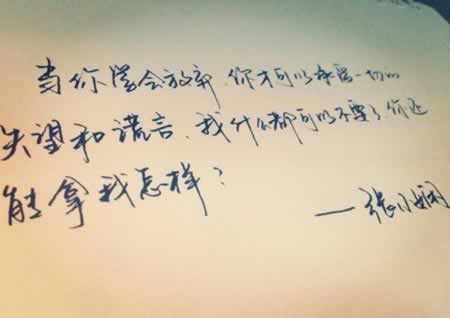 当你学会放弃,你才可以承受一切的
失望和谎言、我什么都可以不要了,你还
能拿我怎样?
——张小娴